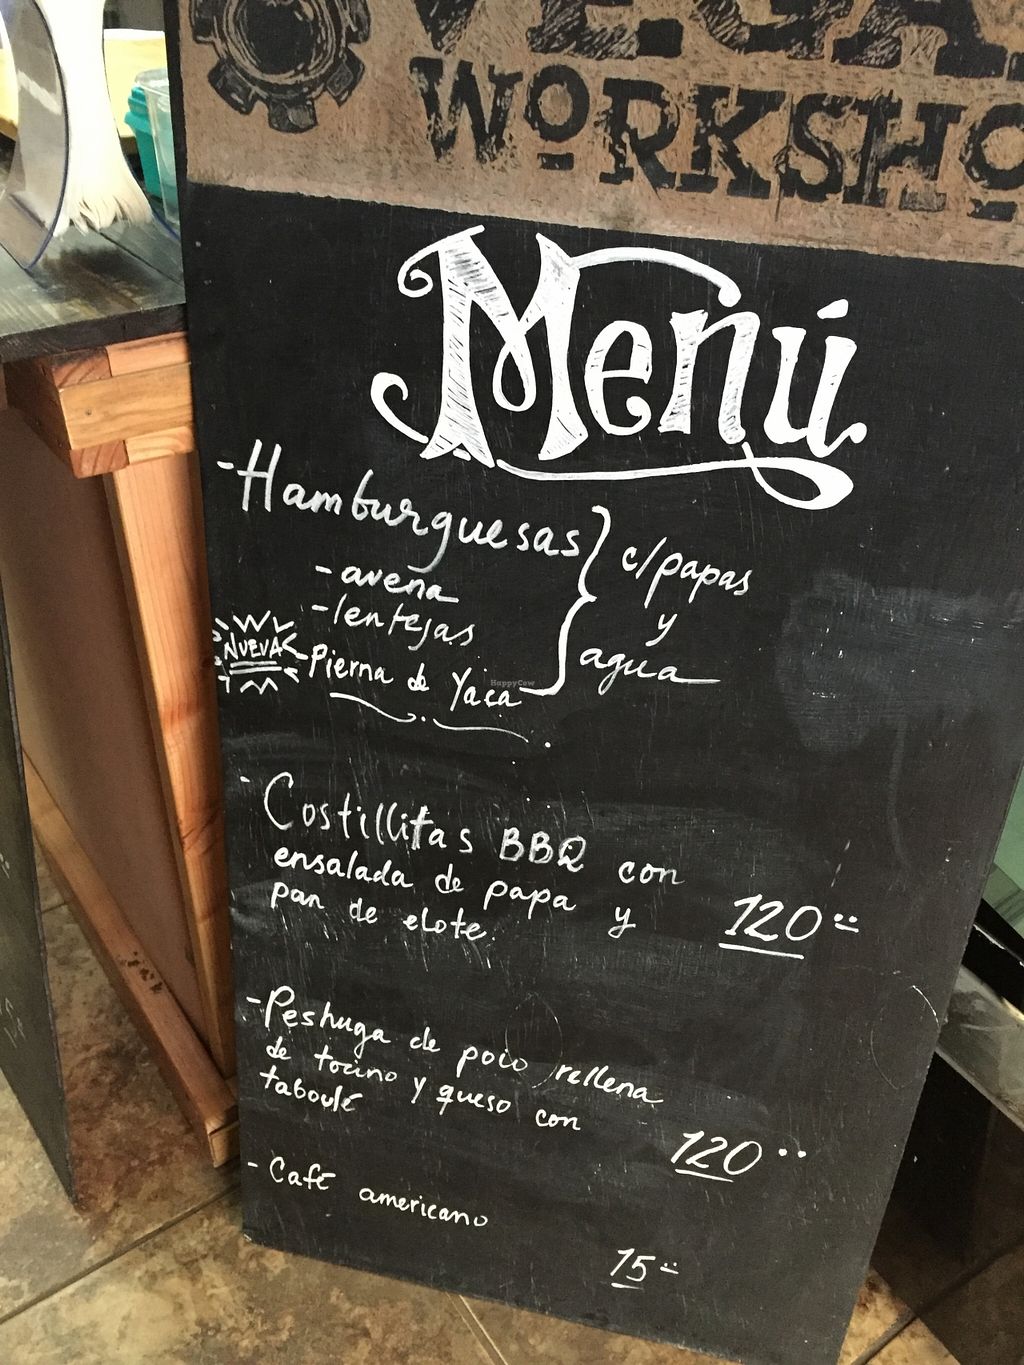 VEGA
WORKSHO
Menú
- Hamburguesas
- avena
- lentejas
c/papas
y
agua
NUEVA
- Pierna de Yaca
HappyCow
- Costillitas BBQ con
ensalada de papa y
pan de elote.
120
- Peshuga de poio rellena
de tocino y queso con
taboulé
120
- Café americano
15